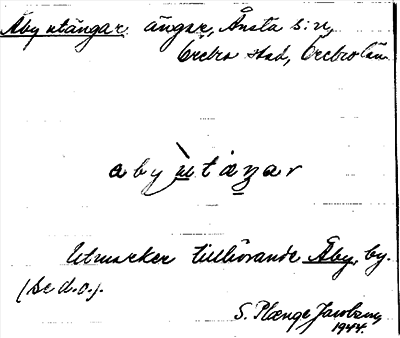 Åby utängar ängar, Ånsta s:n,
Örebro stad, Örebro län.
a b y ù t ä ŋ a r
Utmarker tillhörande Åby, by.
(Se d.o.).
S. Plænge Jacobson
1944.